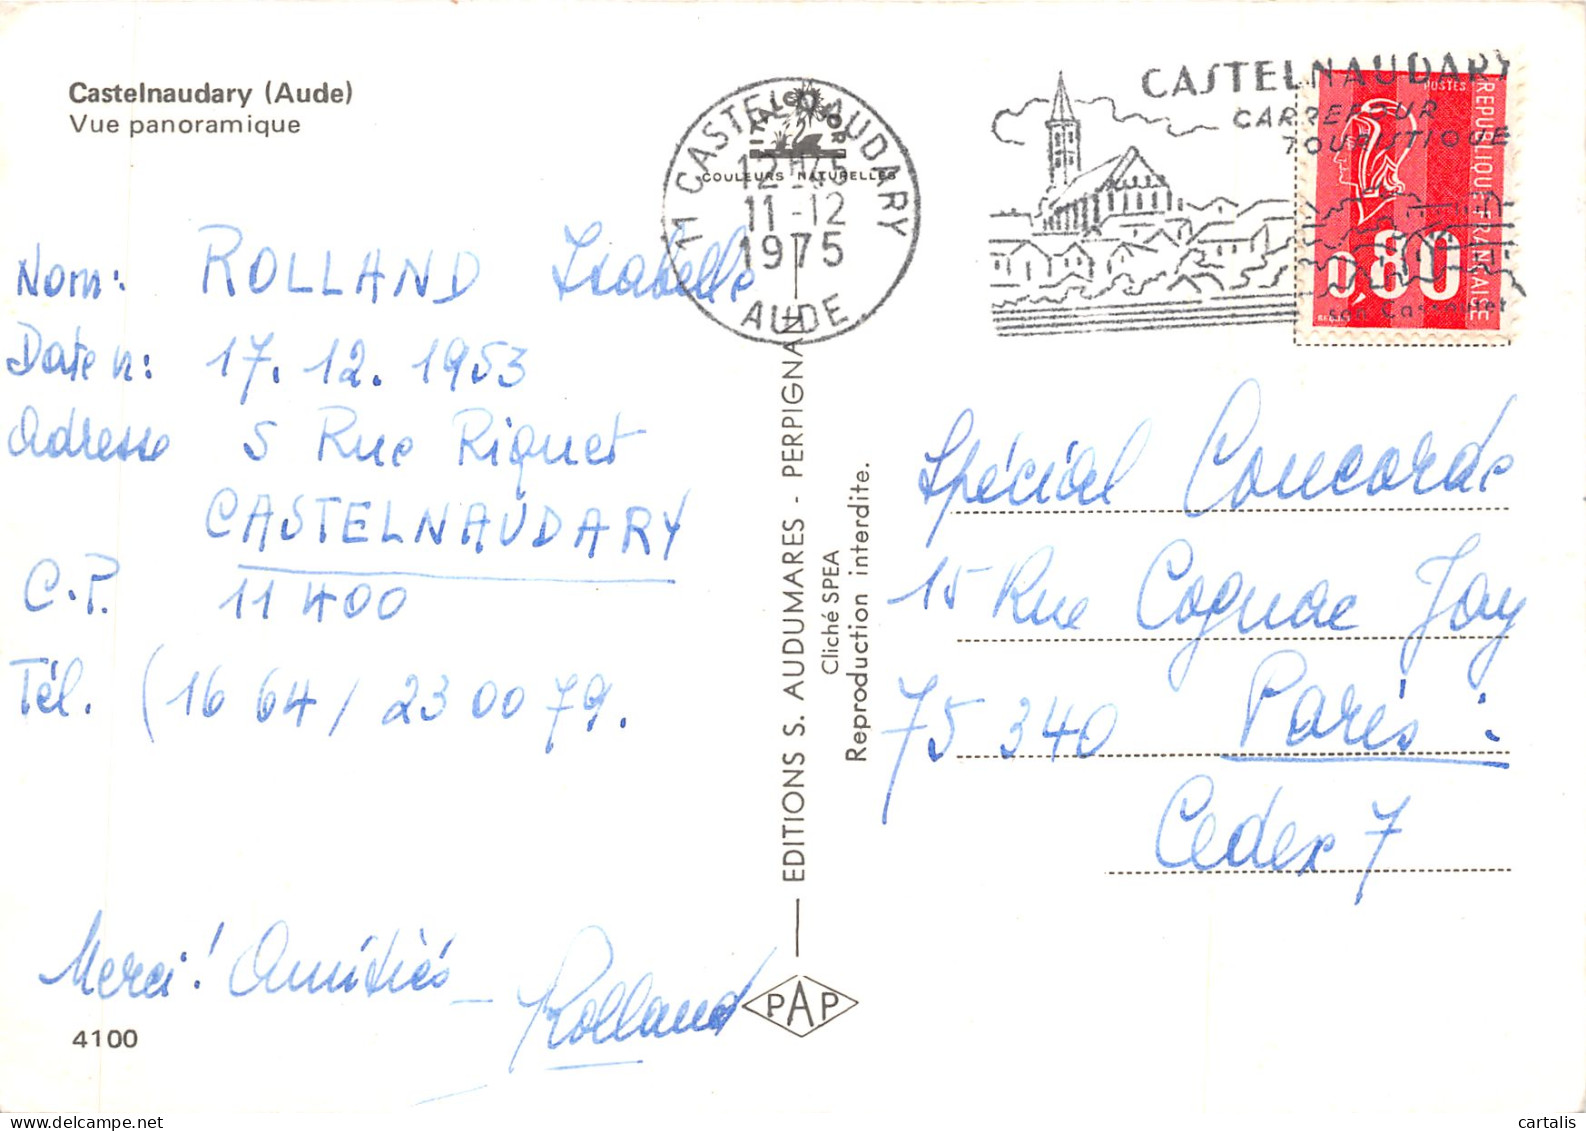 Castelnaudary (Aude)
Vue panoramique
11 CASTELNAUDARY
ITALCOLOR
COULEURS NATURELLES
12H45
11-12
1975
AUDE
CASTELNAUDARY
CARREFOUR
TOURISTIQUE
son Cassoulet
POSTES
REPUBLIQUE FRANÇAISE
0,80
Nom: ROLLAND Isabelle
Date n: 17.12.1953
Adresse 5 Rue Riquet
CASTELNAUDARY
C.P. 11 400
Tél. (16 64 / 23 00 79.
Merci! Amitiés_
Rolland
4100
EDITIONS S. AUDUMARES - PERPIGNAN
Cliché SPEA
Reproduction interdite.
PAP
Spécial Concorde
15 Rue Cognac Jay
75 340 Paris:
Cedex 7
cartalis
delcampe.net